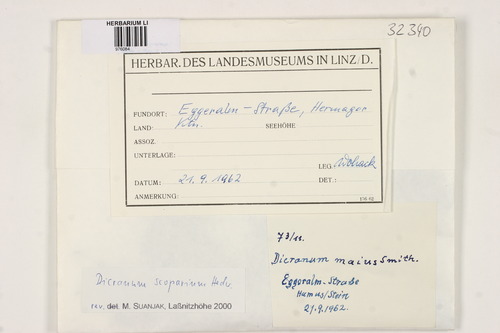 HERBARIUM LI
32340
HERBAR. DES LANDESMUSEUMS IN LINZ/D.
FUNDORT: Eggeralm – Straße, Hermagor
LAND: Ktn. SEEHÖHE
ASSOZ.
UNTERLAGE:
LEG.
DATUM: 21. 9. 1962 DET.:
ANMERKUNG:
Dicranum scoparium Hedw.
rev. det. M. SUANJAK, Laßnitzhöhe 2000
Dicranum maius Smith.
Eggeralm-Straße
Humus/Stein
21.9.1962.